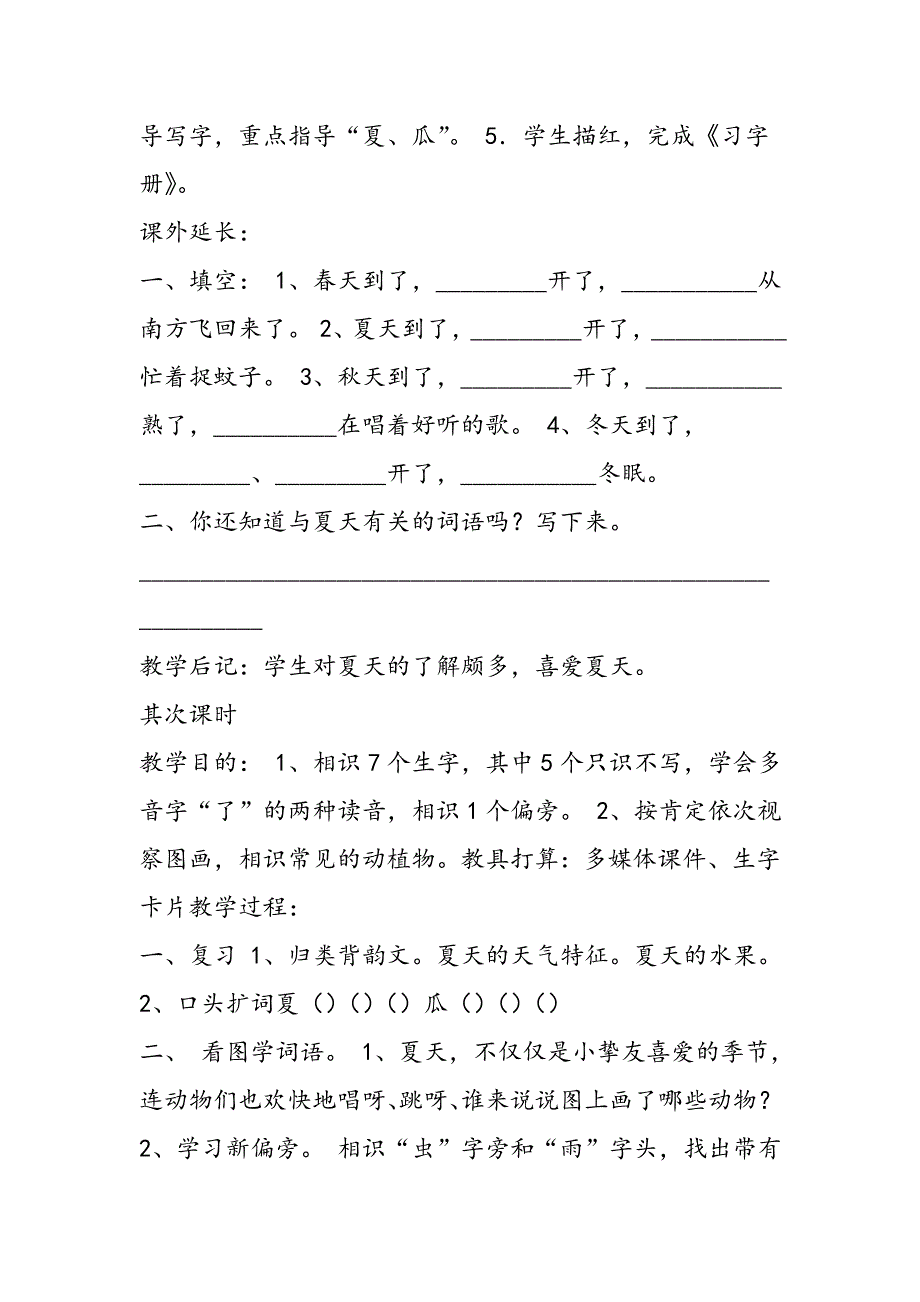 导写字，重点指导“夏、瓜”。 5．学生描红，完成《习字
册》。
课外延长：
一、填空： 1、春天到了，_________开了，___________从
南方飞回来了。 2、夏天到了，_________开了，___________
忙着捉蚊子。 3、秋天到了，_________开了，___________
熟了，__________在唱着好听的歌。 4、冬天到了，
_________、_________开了，___________冬眠。
二、你还知道与夏天有关的词语吗？写下来。
___________________________________________________
__________
教学后记：学生对夏天的了解颇多，喜爱夏天。
其次课时
教学目的： 1、相识7个生字，其中5个只识不写，学会多
音字“了”的两种读音，相识1个偏旁。 2、按肯定依次视
察图画，相识常见的动植物。教具打算：多媒体课件、生字
卡片教学过程：
一、复习 1、归类背韵文。夏天的天气特征。夏天的水果。
2、口头扩词夏（）（）（）瓜（）（）（）
二、 看图学词语。 1、夏天，不仅仅是小挚友喜爱的季节，
连动物们也欢快地唱呀、跳呀、谁来说说图上画了哪些动物？
2、学习新偏旁。 相识“虫”字旁和“雨”字头，找出带有